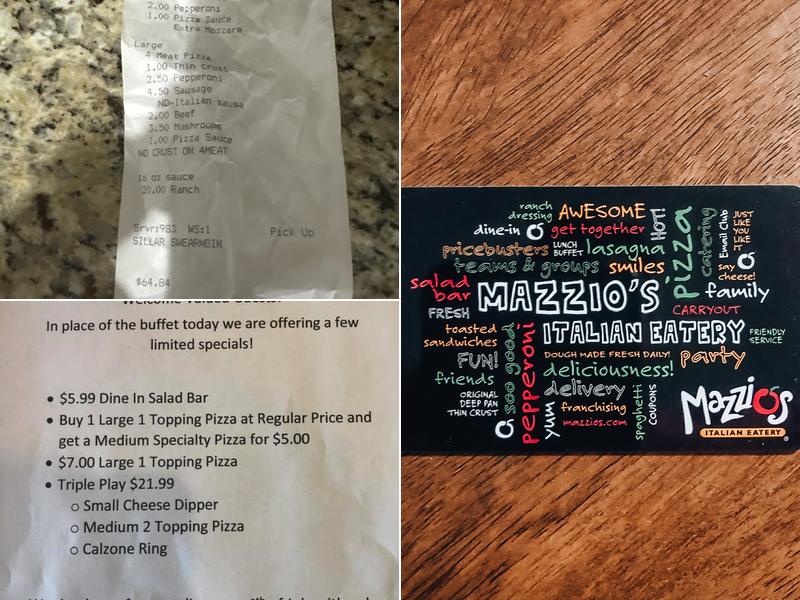 2.00 Pepperoni
1.00 Pizza Sauce
Extra Mozzare
Large
4 Meat Pizza
1.00 Thin crust
2.50 Pepperoni
4.50 Sausage
NO-Italian sausa
2.00 Beef
3.50 Mushrooms
1.00 Pizza Sauce
NO CRUST ON 4MEAT
16 oz sauce
20.00 Ranch
Srvr:983 WS:1
Pick Up
SILLAR SWEARNGIN
$64.84
Welcome Valued Guests!
In place of the buffet today we are offering a few
limited specials!
• $5.99 Dine In Salad Bar
• Buy 1 Large 1 Topping Pizza at Regular Price and
get a Medium Specialty Pizza for $5.00
• $7.00 Large 1 Topping Pizza
• Triple Play $21.99
o Small Cheese Dipper
o Medium 2 Topping Pizza
o Calzone Ring
ranch
dressing
AWESOME
HOT!
pizza
catering
Email Club
JUST
LIKE
YOU
LIKE
IT
dine-in
get together
pricebusters
LUNCH
BUFFET
lasagna
teams & groups
smiles
say
cheese!
salad
bar
MAZZIO'S
family
FRESH
CARRYOUT
toasted
sandwiches
soo good
pepperoni
ITALIAN EATERY
FRIENDLY
SERVICE
FUN!
DOUGH MADE FRESH DAILY!
party
friends
deliciousness!
ORIGINAL
DEEP PAN
THIN CRUST
yum
delivery
spaghetti
COUPONS
franchising
mazzios.com
Mazzio's
ITALIAN EATERY